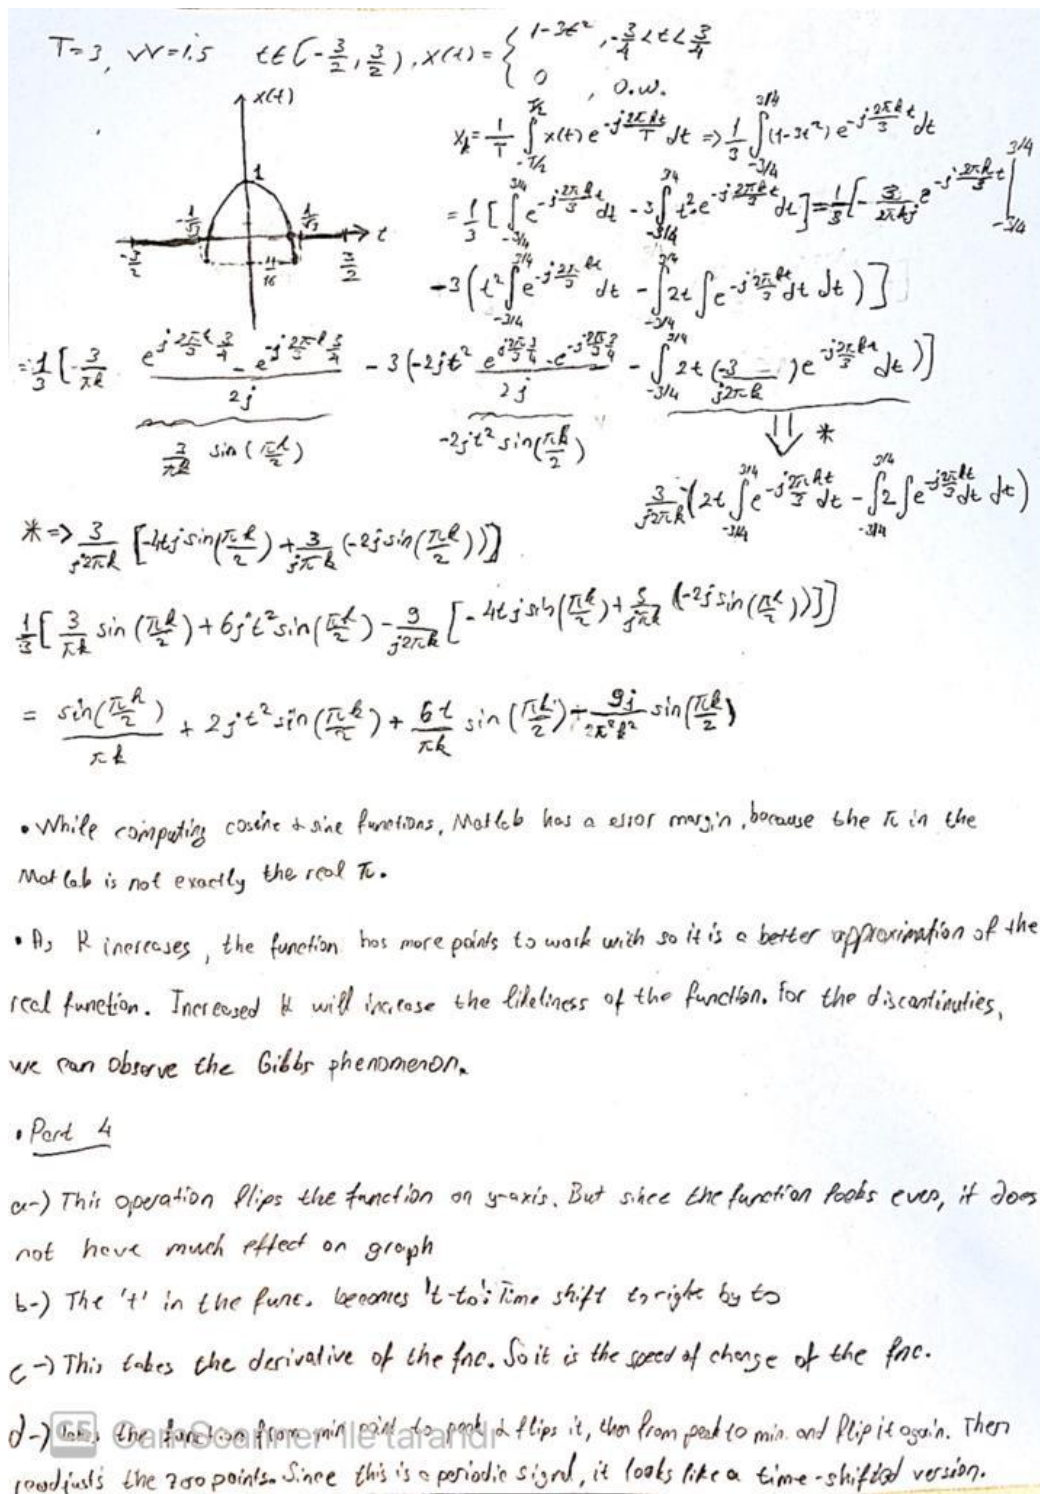 T=3, W=1.5 t∈[-3/2, 3/2), x(t) = { 1-3t², -3/4<t<3/4
0, o.w.
x(t)
1
-1/√3 1/√3 t
-3/2 11/16 3/2
X_k = 1/T ∫_{-T/2}^{T/2} x(t) e^{-j2πkt/T} dt => 1/3 ∫_{-3/4}^{3/4} (1-3t²) e^{-j2πkt/3} dt
= 1/3 [ ∫_{-3/4}^{3/4} e^{-j2πkt/3} dt - 3 ∫_{-3/4}^{3/4} t². e^{-j2πkt/3} dt ] = 1/3 [ -3/(2πkj) e^{-j2πkt/3} |_{-3/4}^{3/4}
-3 ( t² ∫_{-3/4}^{3/4} e^{-j2πkt/3} dt - ∫_{-3/4}^{3/4} 2t ∫ e^{-j2πkt/3} dt dt ) ]
= 1/3 [ -3/(πk) (e^{j2πk/3 3/4} - e^{-j2πk/3 3/4})/2j - 3 (-2jt² (e^{j2π/3 3/4} - e^{-j2π/3 3/4})/2j - ∫_{-3/4}^{3/4} 2t (-3/(j2πk)) e^{-j2πkt/3} dt ) ]
3/(πk) sin(πk/2) -2jt² sin(πk/2) ⇓ *
3/(j2πk) (2t ∫_{-3/4}^{3/4} e^{-j2πkt/3} dt - ∫_{-3/4}^{3/4} 2 ∫ e^{-j2πkt/3} dt dt)
* => 3/(j2πk) [-4tj sin(πk/2) + 3/(jπk) (-2j sin(πk/2))]
1/3 [ 3/(πk) sin(πk/2) + 6jt² sin(πk/2) - 9/(j2πk) [ -4tj sin(πk/2) + 3/(jπk) (-2j sin(πk/2)) ] ]
= sin(πk/2)/(πk) + 2jt² sin(πk/2) + 6t/(πk) sin(πk/2) + 9j/(2π²k²) sin(πk/2)
• While computing cosine & sine functions, Matlab has a error margin, because the π in the
Matlab is not exactly the real π.
• As K increases, the function has more points to work with so it is a better approximation of the
real function. Increased K will increase the likeliness of the function. For the discontinuties,
we can observe the Gibbs phenomenon.
• Part 4
a-) This operation flips the function on y-axis. But since the function looks even, it does
not have much effect on graph
b-) The 't' in the func. becomes 't-to'. Time shift to right by to
c-) This takes the derivative of the fnc. So it is the speed of change of the fnc.
d-) the function from min point to peak & flips it, then from peak to min. and flip it again. Then
readjusts the zero points. Since this is a periodic signal, it looks like a time-shifted version.
CS CamScanner ile tarandı